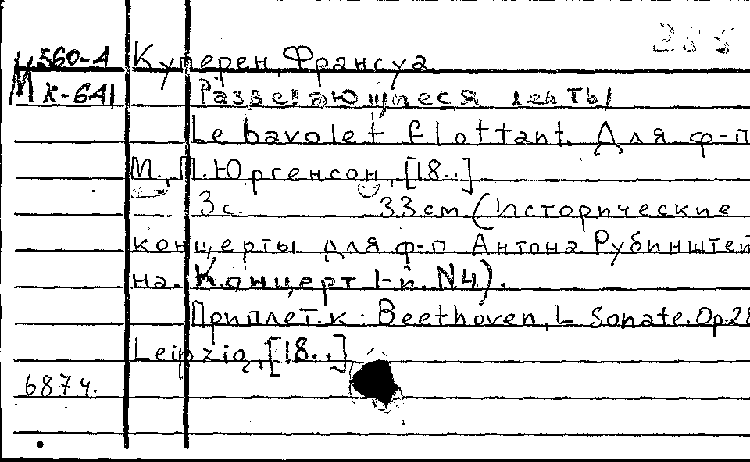 Ц 560-4 Куперен, Франсуа
М К-641 Развевающиеся ленты
Le bavolet flottant. Для ф-п
М., П. Юргенсон, [18..]
3с. 33 см (Исторические
концерты для ф-п Антона Рубинштей
на. Концерт 1-й. N4).
Приплет. к: Beethoven, L Sonate. Op. 28
Leipzig, [18..]
6874.